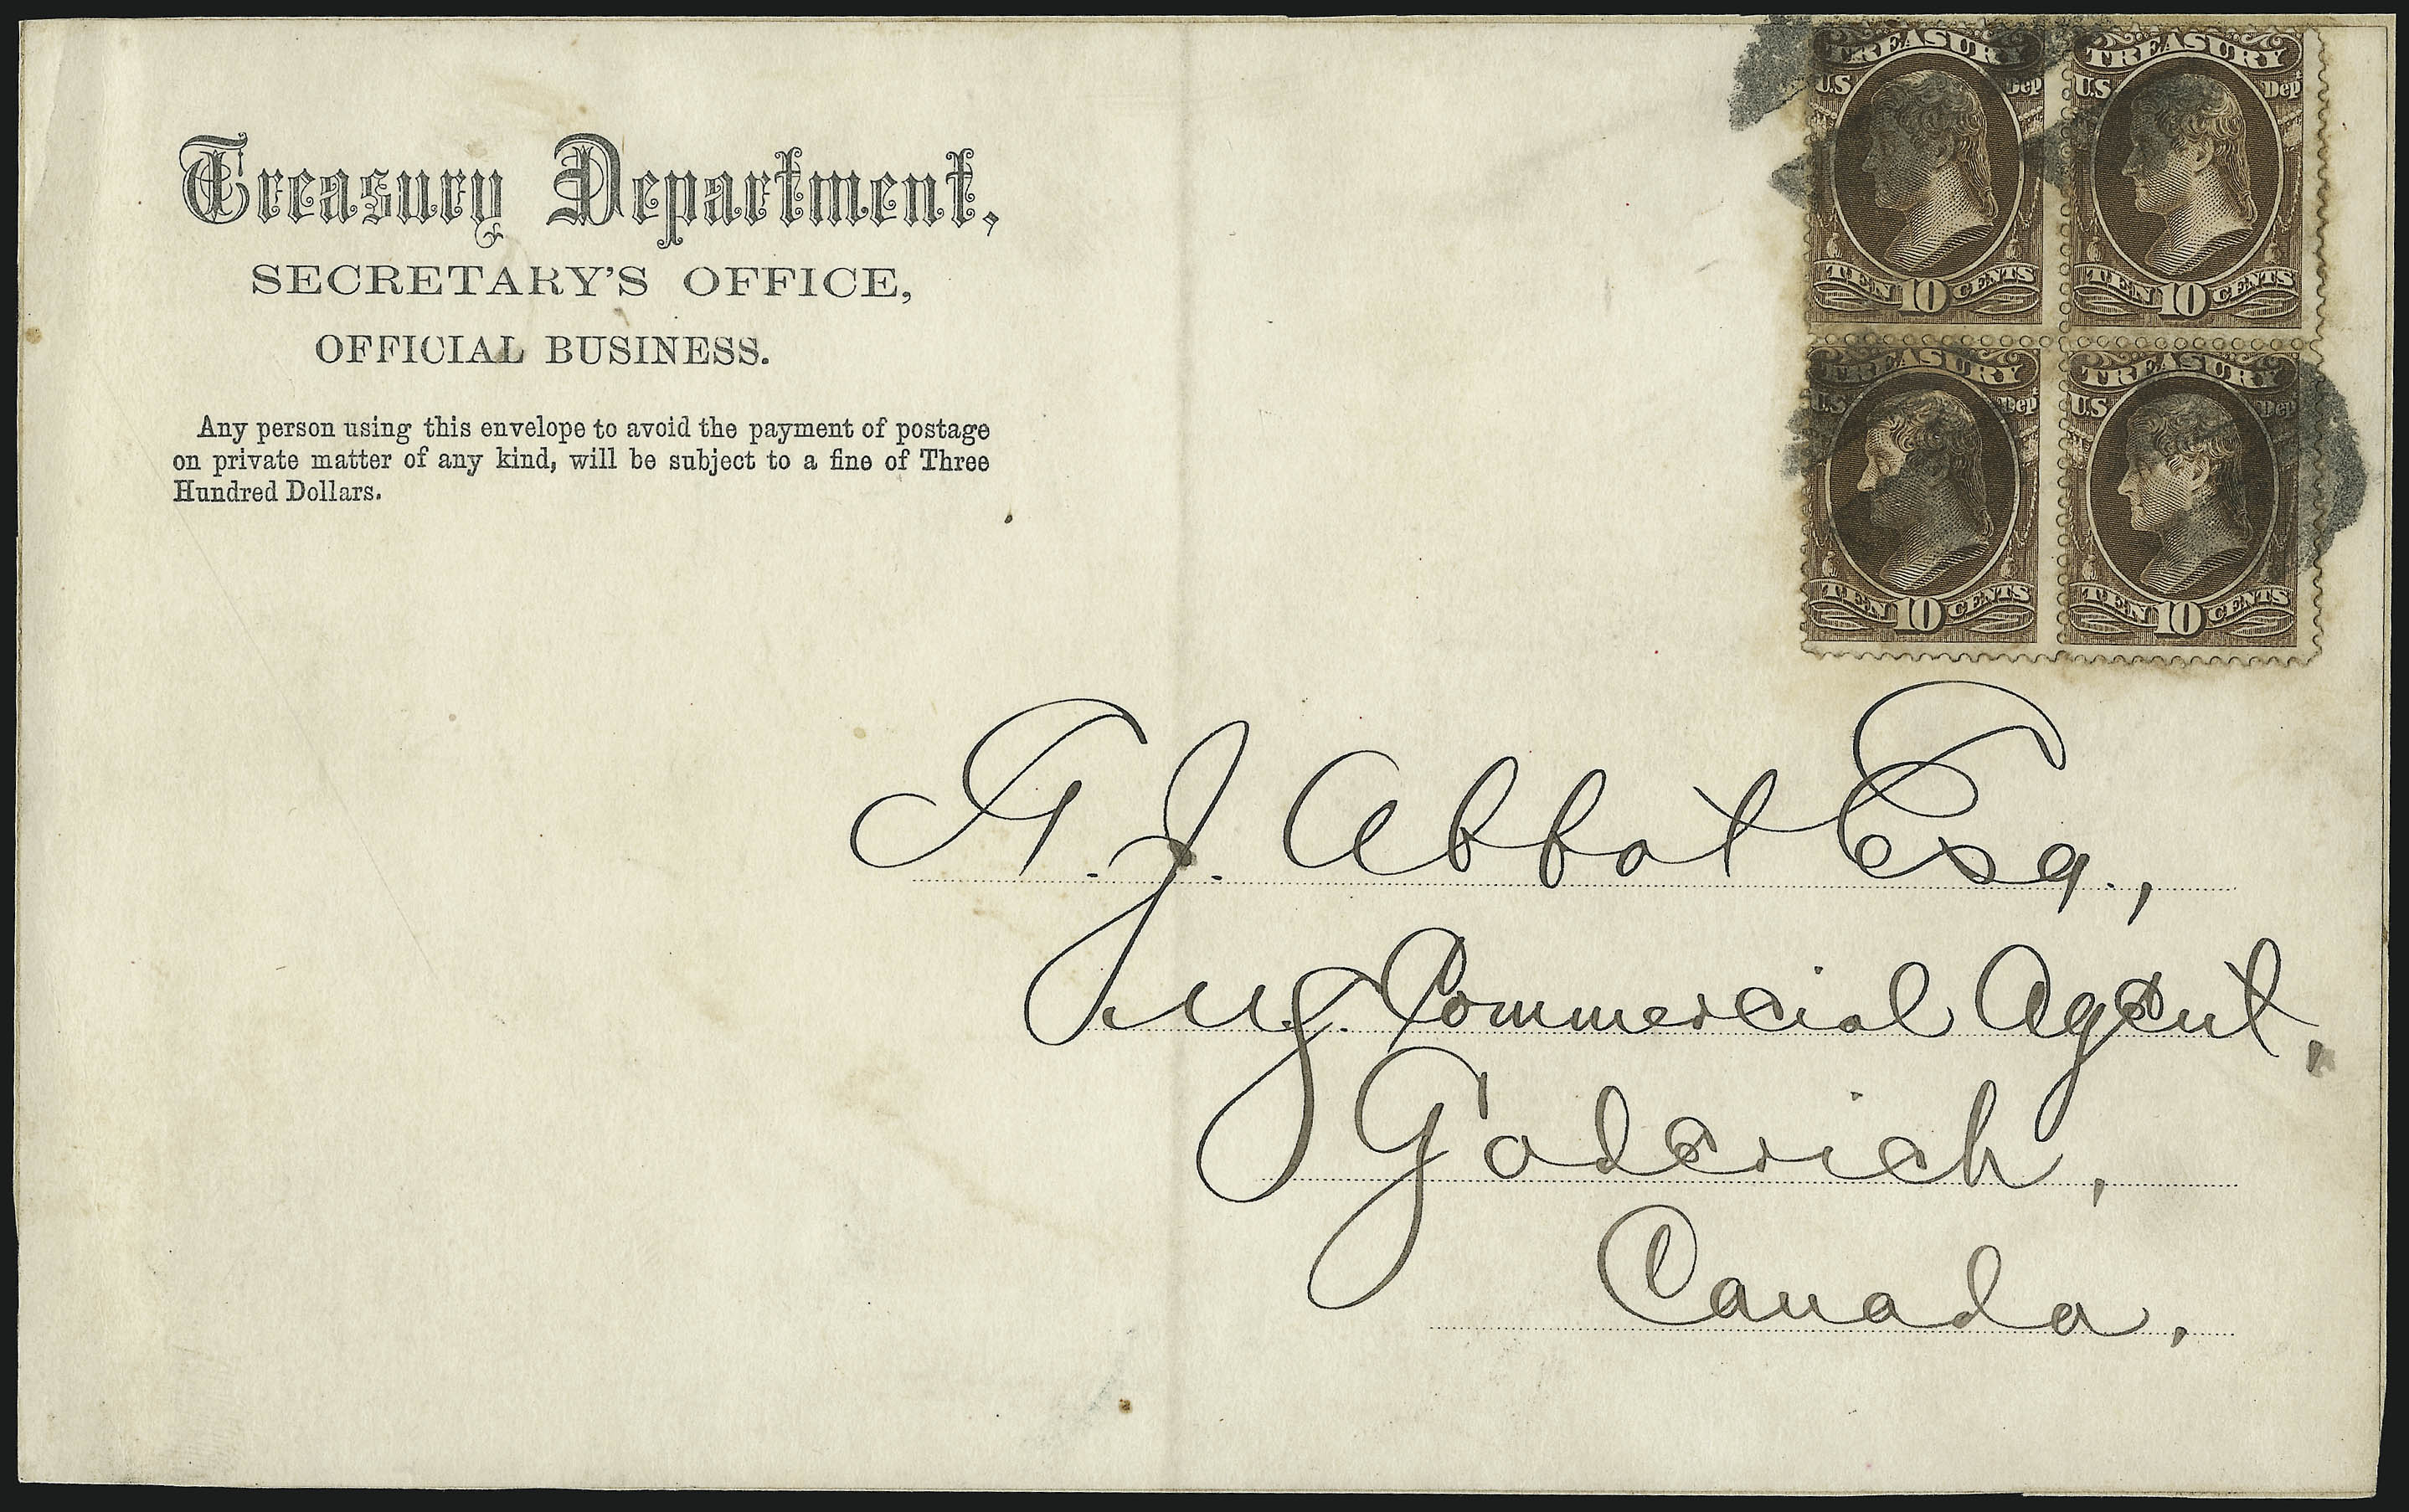 Treasury Department,
SECRETARY'S OFFICE,
OFFICIAL BUSINESS.
Any person using this envelope to avoid the payment of postage
on private matter of any kind, will be subject to a fine of Three
Hundred Dollars.
TREASURY TREASURY
U.S Dept U.S Dept
TEN 10 CENTS TEN 10 CENTS
TREASURY TREASURY
U.S Dept U.S Dept
TEN 10 CENTS TEN 10 CENTS
J. Abbot Esq.,
U.S. Commercial Agent,
Goderich,
Canada.